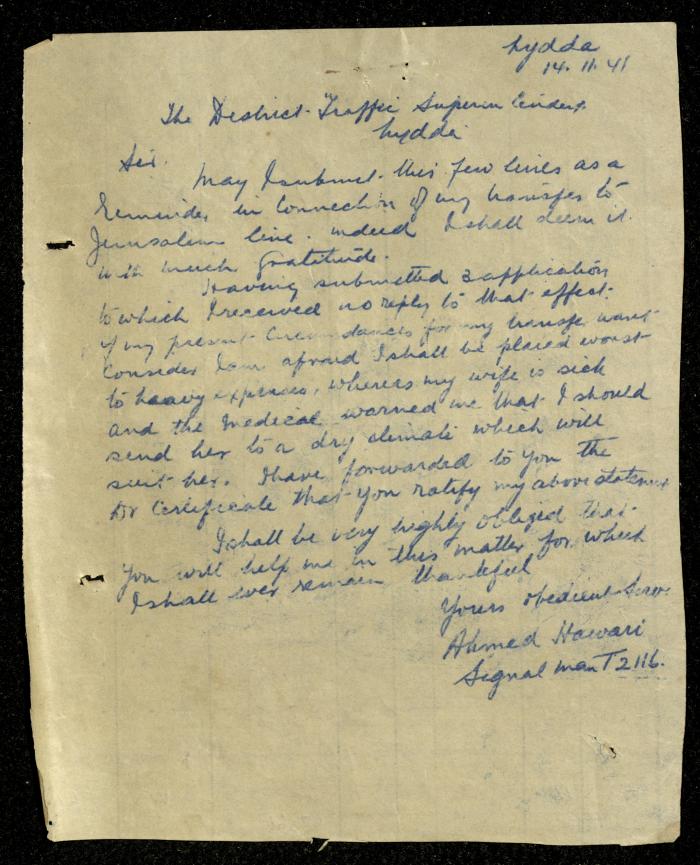 Lydda
14.11.41
The District Traffic Superintendent
Lydda
Sir.
May I submit this few lines as a
Reminder in Connection of my transfer to
Jerusalem line. indeed I shall deem it
with much gratitude.
Having submitted 3 application
to which I received no reply to that effect.
if my present Circumstances for my transfer wont
Consider I am afraid I shall be placed worst
to heavy expenses, whereas my wife is sick
and the Medical warned me that I should
send her to a dry climate which will
suit her. I have forwarded to you the
Dr Certificate that you ratify my above statement
I shall be very highly obliged that
you will help me in this matter for which
I shall ever remain thankful
Yours obedient Serv.
Ahmed Hawari
Signal man T 2116.